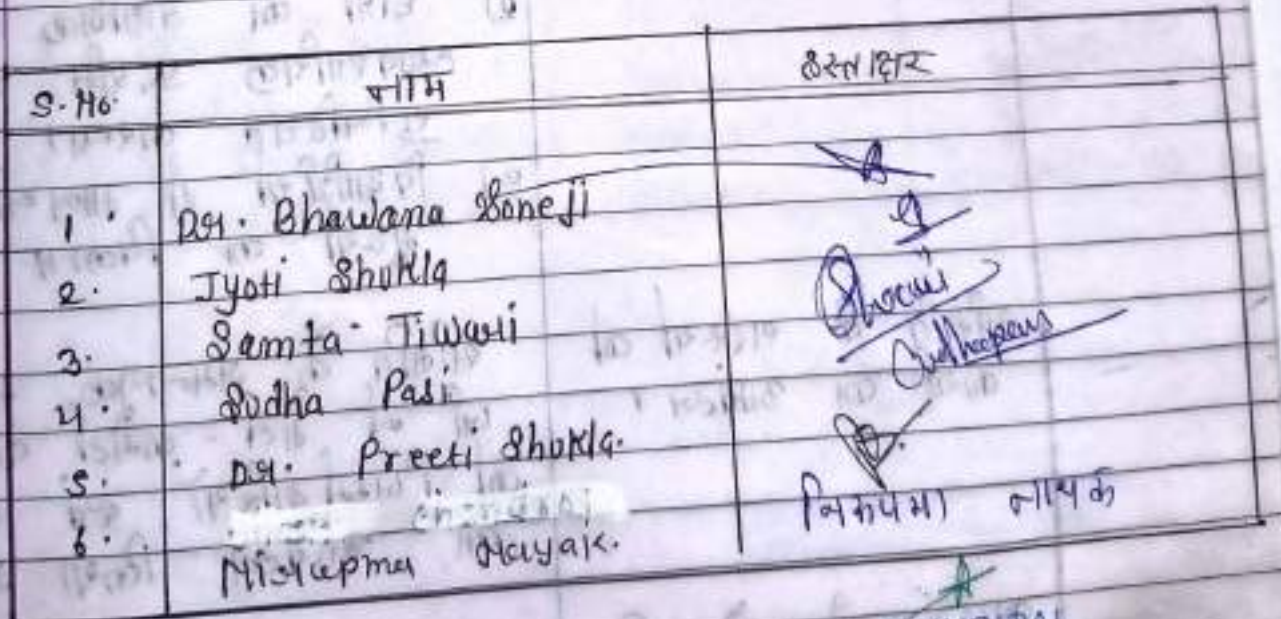 S.No. नाम हस्ताक्षर
1. Dr. Bhawana Soneji
2. Jyoti Shukla
3. Samta Tiwari
4. Sudha Pasi
5. Dr. Preeti Shukla.
6. Nirupma Nayak. निरूपमा नायक